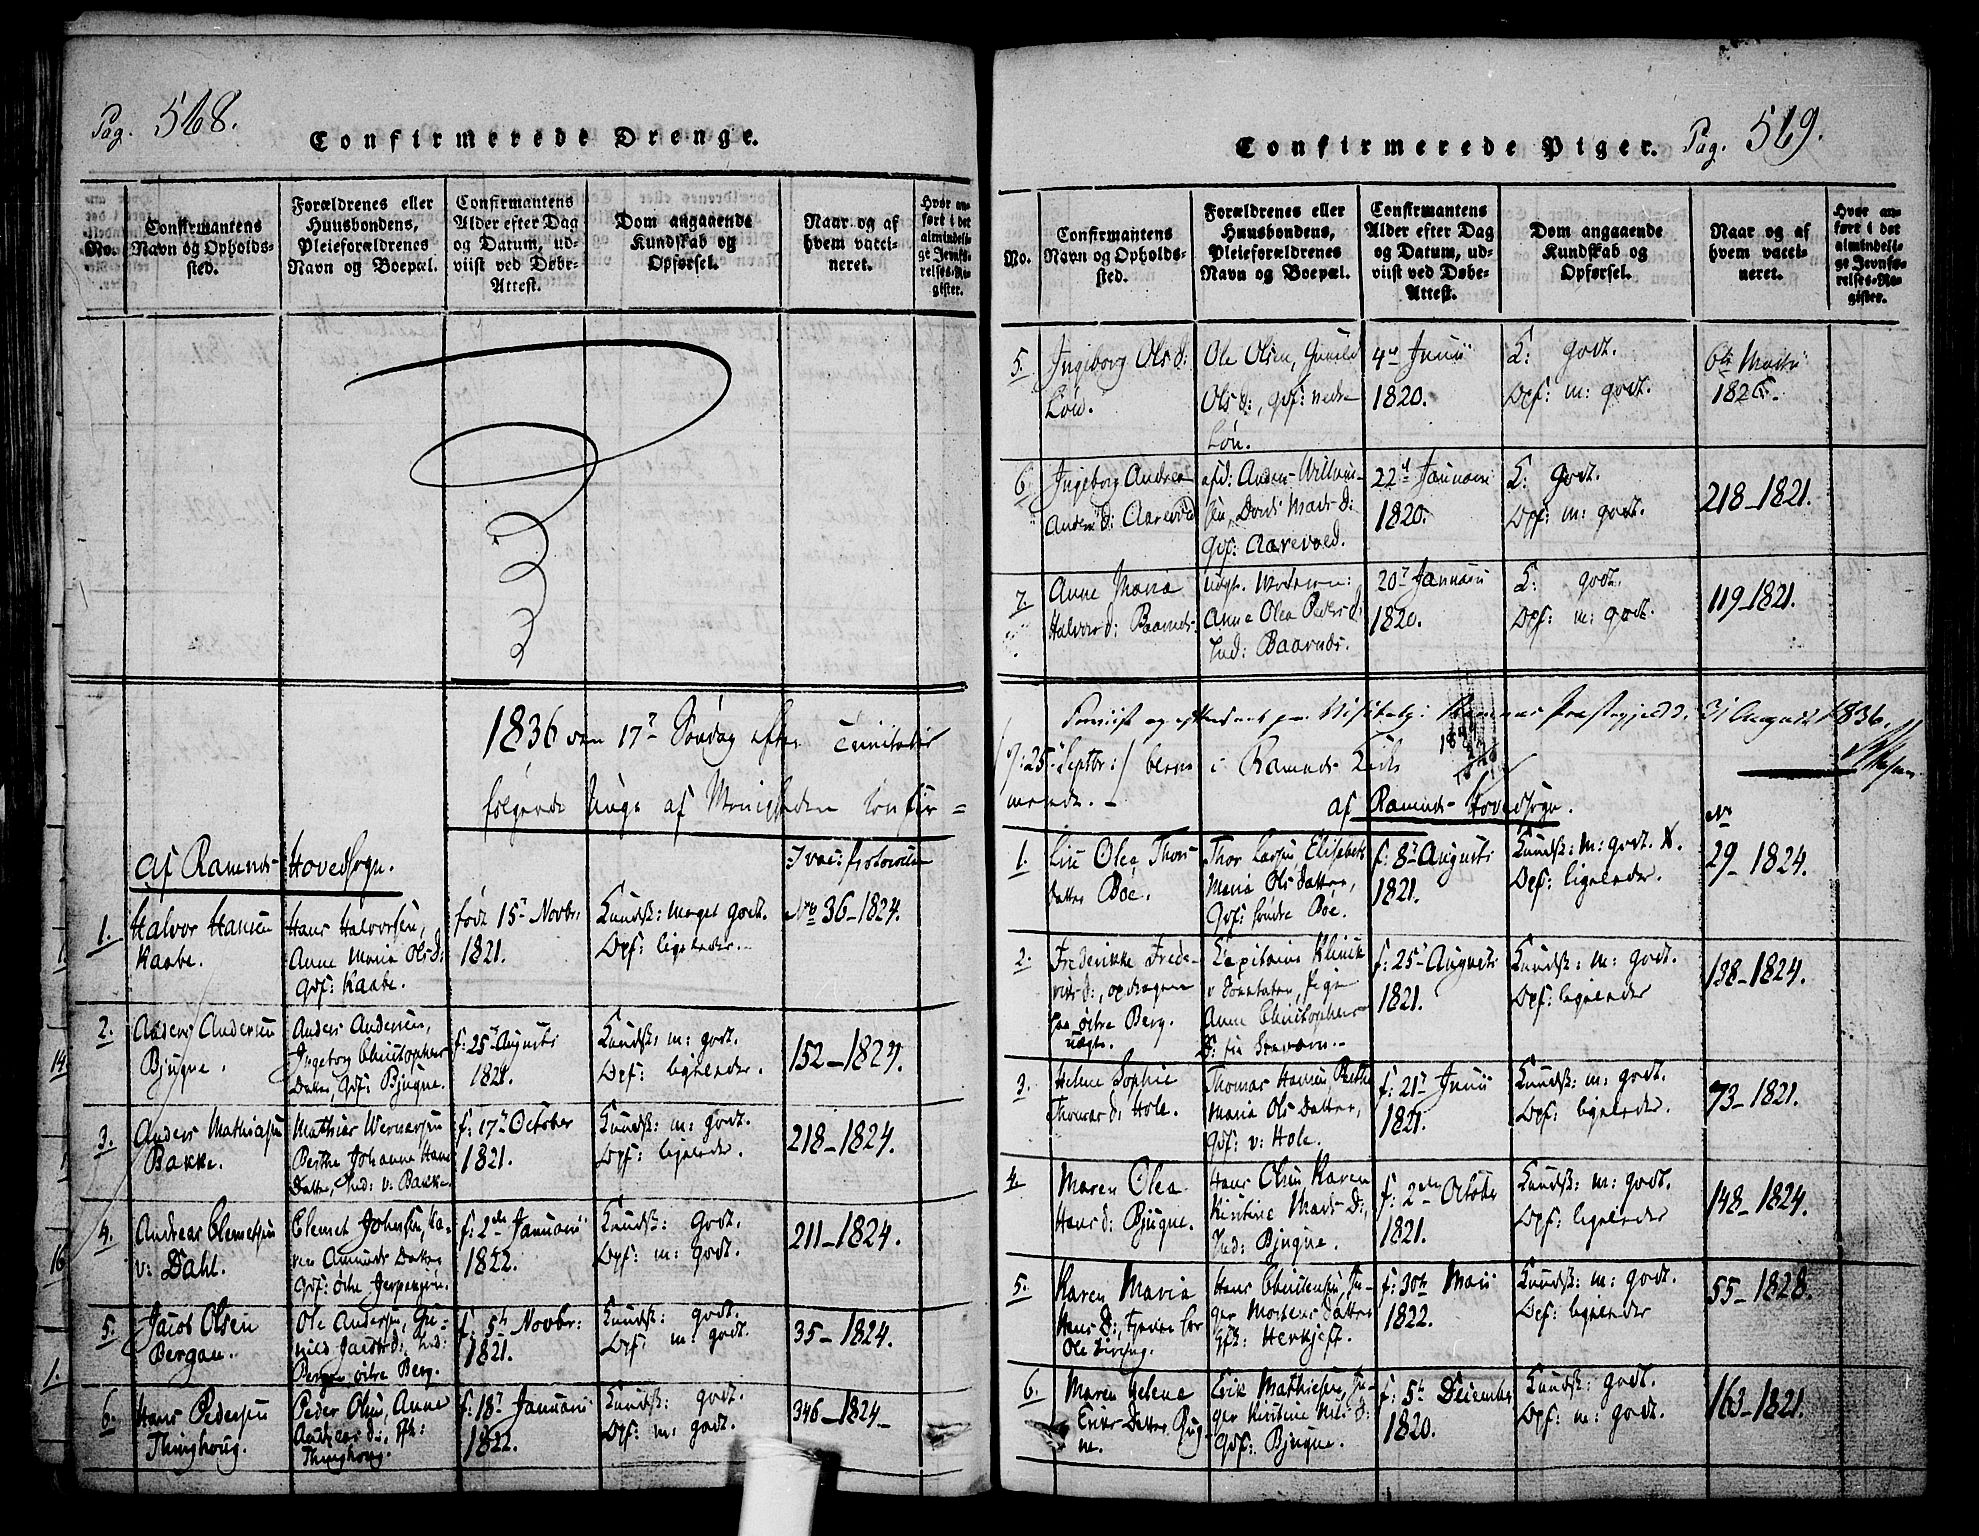 Pag. 568.
Confirmerede Drenge.
No.
Confirmantens
Navn og Opholds-
sted.
Forældrenes eller
Huusbondens,
Pleieforældrenes
Navn og Boepæl.
Confirmantens
Alder efter Dag
og Datum, ud-
viist ved Døbe-
Attest.
Dom angaaende
Kundskab og
Opførsel.
Naar og af
hvem vacci-
neret.
Hvor an-
ført i det
almindeli-
ge Jevnfø-
relses-Re-
gister.
1836 den 17de Søndag efter Trinitatis
følgende Unge af Menigheden confir=
af Ramnæs Hovedsogn.
1.
Halvor Hansen
Kaabe.
Hans Halvorsen,
Anne Maria Olsd:
Gdf: Kaabe.
født 15de Novbr:
1821.
Kundsk: meget godt.
Opf: ligeledes.
No 36-1824.
2.
Anders Andersen
Bjugne.
Anders Andersen,
Ingeborg Christophers
Datter, Gdf: Bjugne.
f: 25de Augusti
1821.
Kundsk: m: godt.
Opf: ligeledes.
152-1824.
3.
Anders Mathiasen
Bakke.
Mathias Wernersen
Berthe Johanne Hans
Datter, Ind: v: Bakke.
f: 17de October
1821.
Kundsk: m: godt.
Opf: ligeledes.
218-1824.
4.
Andreas Clemetsen
v: Dahl.
Clemet Johnsen, Ka-
ren Amunds Datter
f: 2den Januarii
1822.
Kundsk: godt.
Opf: m: godt.
211-1824.
5.
Jacob Olsen
Bergan.
Ole Andersen, Gu-
nild Jacobsd: Ind:
Bergan østre Berg.
f: 5te Novbr:
1821.
Kundsk: godt.
Opf: m: godt.
35-1824.
6.
Hans Pedersen
Thinghoug.
Peder Olsen, Anne
Andreasd:,
Thinghoug.
f: 18de Januarii
1822.
Kundsk: godt.
Opf: m: godt.
346-1824-
Confirmerede Piger. Pag. 569.
No.
Confirmantens
Navn og Opholds-
sted.
Forældrenes eller
Huusbondens,
Pleieforældrenes
Navn og Boepæl.
Confirmantens
Alder efter Dag
og Datum, ud-
viist ved Døbe-
Attest.
Dom angaaende
Kundskab og
Opførsel.
Naar og af
hvem vacci-
neret.
Hvor an-
ført i det
almindeli-
ge Jevnfø-
relses-Re-
gister.
5.
Ingeborg Olsd:
Ole Olsen, Gunild
Olsd:, Gdf: nedre
4de Junii
1820.
K: godt.
Opf: m: godt.
6.
Ingeborg Andrea
Andersd: Aarevold
Dorth Madsd:
Gdf: Aarevold.
22de Januarii
1820.
K: godt.
Opf: m: godt.
218-1821.
7.
Anne Maria
Halvorsd: Baarnæs.
Anne Olea Pedersd:
Ind: Baarnæs.
20de Januarii
1820.
K: godt.
Opf: m: godt.
119-1821.
31 August 1836.
/: 25de Septbr :/ bleve i Ramnæs Kirke
merede. -
af Ramnæs Hovedsogn.
No
1.
Live Olea Thors
Datter Bøe.
Thor Larsen Elisabeth
Maria Ols Datter,
Gdf: søndre Bøe.
f: 8de Augusti
1821.
Kundsk: m: godt.
Opf: ligeledes.
29-1824.
2.
Frederikke Frede-
riksd:, opdragen
hos østre Berg.
uægte.
Anne Christophers
f: 25de Augusti
1821.
Kundsk: m: godt.
Opf: ligeledes
138-1824.
3.
Helene Sophie
Thomasd: Hole.
Thomas Hansen Berthe
Maria Ols Datter,
Gdf: v: Hole.
f: 21de Junii
1821.
Kundsk: m: godt.
Opf: ligeledes.
73-1821.
4.
Maren Olea
Hansd: Bjugne.
Hans Olsen Karen
Kirstine Madsd:,
Ind: Bjugne.
f: 2den October
1821.
Kundsk: m: godt.
Opf: ligeledes
148-1824.
5.
Karen Maria
Hansd:, tjener hos
Hans Christensen, In-
ger Mortens Datter
f: 30te Maii
1822.
Kundsk: m: godt.
Opf: ligeledes
55-1828.
6.
Maren Helene
Eriks Datter, Bjug-
ne.
Erik Mathiesen, In-
ger Kirstine Nilsd:
Gdf: Bjugne.
f: 5te December
1820.
Kundsk: godt.
Opf: m: godt.
163-1821.